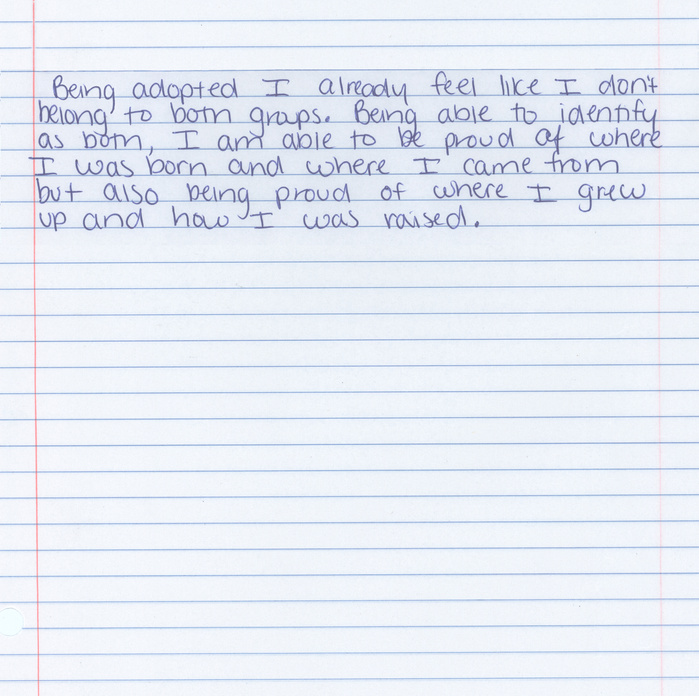 Being adopted I already feel like I don't
belong to both graps. Being able to identify
as both, I am able to be proud of where
I was born and where I came from
but also being proud of where I grew
up and how I was raised.